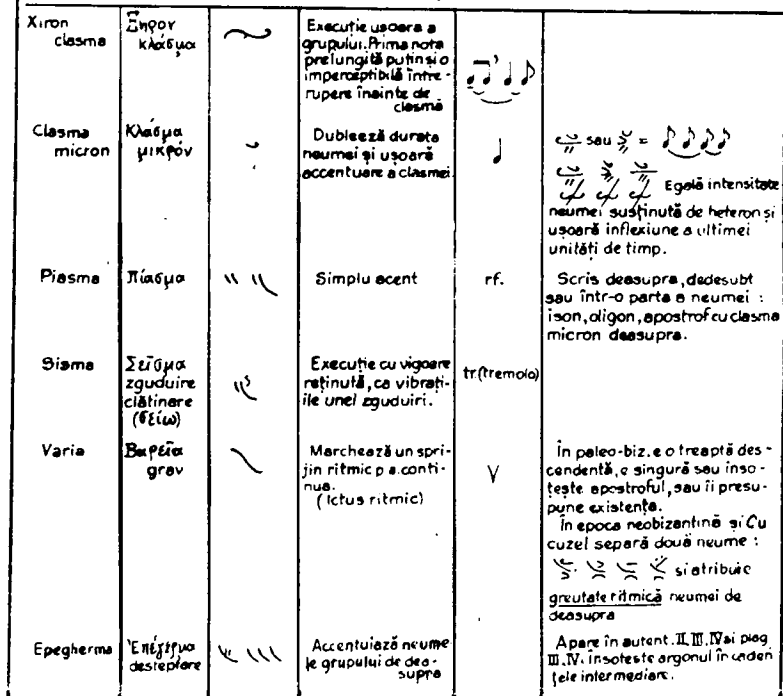 Xiron
clasma
Ξηρον
κλάσμα
Execuție ușoara a
grupului. Prima nota
prelungită puțin și o
imperceptibilă între-
rupere înainte de
clasmă
Clasma
micron
Κλάσμα
μικρόν
Dublează durata
neumei și ușoară
accentuare a clasmei.
sau =
Egală intensitate
neumei susținută de heteron și
ușoară inflexiune a ultimei
unități de timp.
Piasma
Πίασμα
Simplu acent
rf.
Scris deasupra, dedesubt
sau într-o parta a neumei :
ison, oligon, apostrof cu clasma
micron deasupra.
Sisma
Σεῖσμα
zguduire
clătinare
(σείω)
Execuție cu vigoare
reținută, ca vibrați-
ile unei zguduiri.
tr.(tremolo)
Varia
Βαρεῖα
grav
Marchează un spri-
jin ritmic p a. conti-
nua.
(Ictus ritmic)
V
În paleo-biz. e o treaptă des-
cendentă, e singură sau înso-
țește apostroful, sau îi presu-
pune existența.
În epoca neobizantină și Cu
cuzel separă două neume :
si atribuie
greutate ritmică neumei de
deasupra
Epegherma
Ἐπέγερμα
desteptare
Accentuiază neume
le grupului de dea-
supra
Apare în autent. II, III, IV si plag
III, IV. însoteste argonul în caden
țele intermediare.